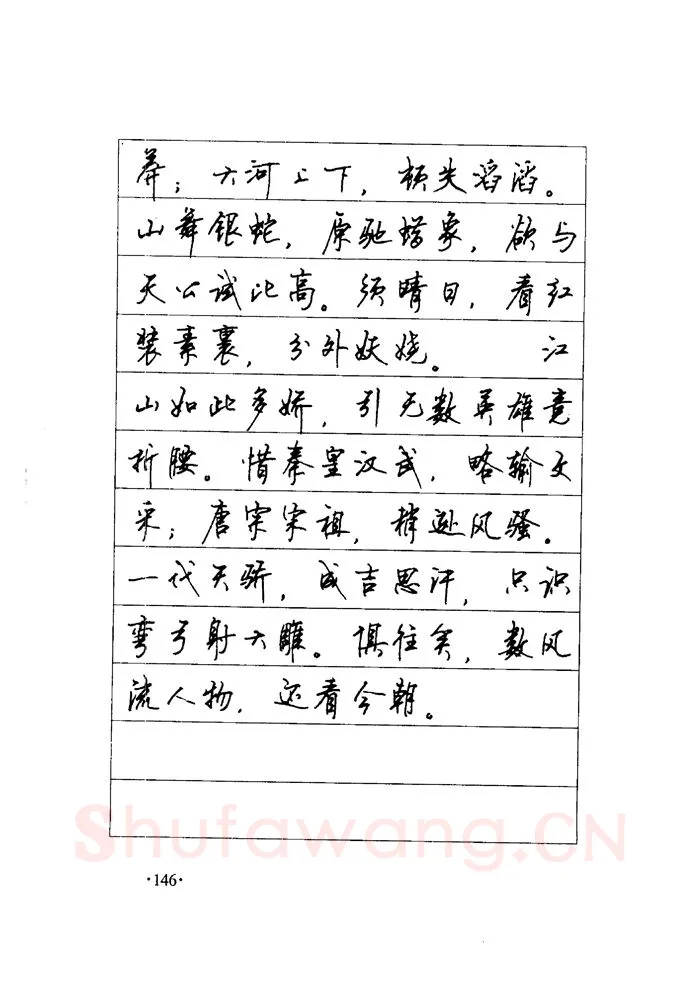 莽；大河上下，顿失滔滔。
山舞银蛇，原驰蜡象，欲与
天公试比高。须晴日，看红
装素裹，分外妖娆。 江
山如此多娇，引无数英雄竞
折腰。惜秦皇汉武，略输文
采；唐宗宋祖，稍逊风骚。
一代天骄，成吉思汗，只识
弯弓射大雕。俱往矣，数风
流人物，还看今朝。
Shufawang.CN
·146·